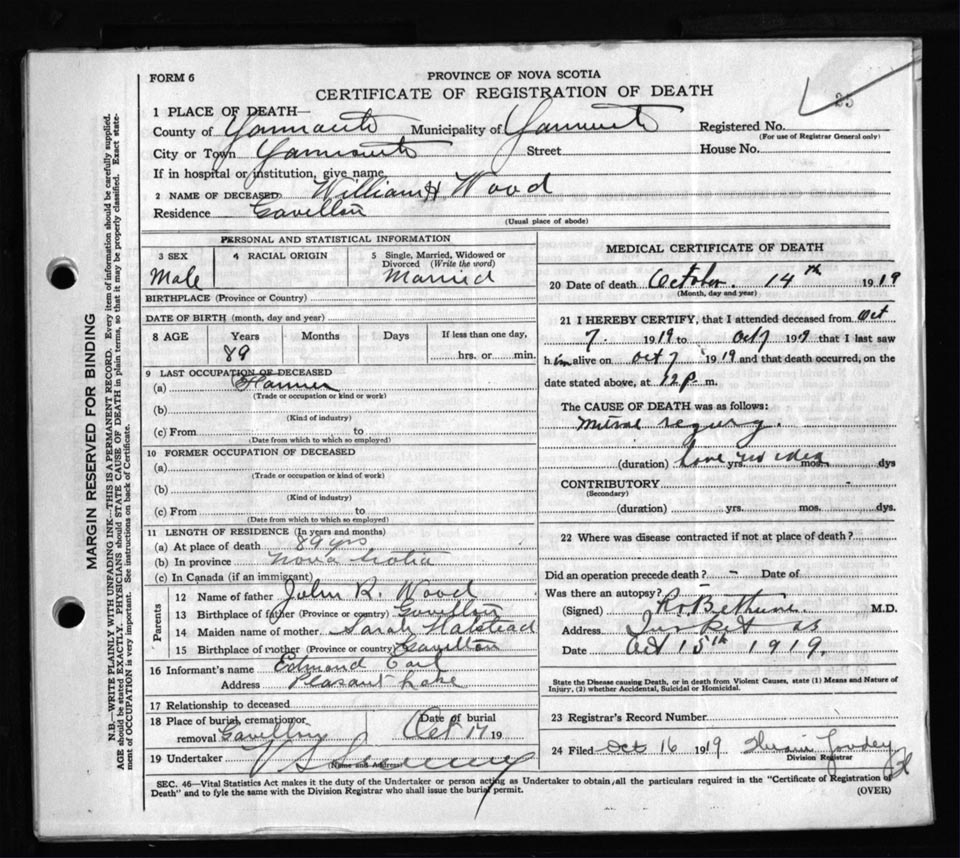 FORM 6
PROVINCE OF NOVA SCOTIA
CERTIFICATE OF REGISTRATION OF DEATH
25
MARGIN RESERVED FOR BINDING
N.B.—WRITE PLAINLY WITH UNFADING INK—THIS IS A PERMANENT RECORD. Every item of information should be carefully supplied.
AGE should be stated EXACTLY. PHYSICIANS should STATE CAUSE OF DEATH in plain terms, so that it may be properly classified. Exact state-
ment of OCCUPATION is very important. See instructions on back of Certificate.
1 PLACE OF DEATH—
County of Yarmouth Municipality of Yarmouth Registered No.
(For use of Registrar General only)
City or Town Yarmouth Street House No.
If in hospital or institution, give name
2 NAME OF DECEASED William H Wood
Residence
(Usual place of abode)
PERSONAL AND STATISTICAL INFORMATION
3 SEX Male
4 RACIAL ORIGIN
5 Single, Married, Widowed or Divorced (Write the word) Married
BIRTHPLACE (Province or Country)
DATE OF BIRTH (month, day and year)
8 AGE Years Months Days If less than one day,
89 hrs. or min.
9 LAST OCCUPATION OF DECEASED
(a) Farmer
(Trade or occupation or kind or work)
(b)
(Kind of industry)
(c) From to
(Date from which to which so employed)
10 FORMER OCCUPATION OF DECEASED
(a)
(Trade or occupation or kind of work)
(b)
(Kind of industry)
(c) From to
(Date from which to which so employed)
11 LENGTH OF RESIDENCE (In years and months)
(a) At place of death 89 yrs
(b) In province Nova Scotia
(c) In Canada (if an immigrant)
Parents
12 Name of father John R. Wood
13 Birthplace of father (Province or country)
14 Maiden name of mother Sarah Halstead
15 Birthplace of mother (Province or country)
16 Informant's name Edmond Earl
Address Pleasant Lake
17 Relationship to deceased
18 Place of burial, cremation or removal
Date of burial Oct 17 19
19 Undertaker
(Name and Address)
MEDICAL CERTIFICATE OF DEATH
20 Date of death October 14th 1919
(Month, day and year)
21 I HEREBY CERTIFY, that I attended deceased from Oct
7 1919 to Oct 7 1919 that I last saw
him alive on Oct 7 1919 and that death occurred, on the
date stated above, at 12 p m.
The CAUSE OF DEATH was as follows:
Mitral regurg.
(duration) have no idea yrs. mos. dys
CONTRIBUTORY
(Secondary)
(duration) yrs. mos. dys.
22 Where was disease contracted if not at place of death?
Did an operation precede death? – Date of
Was there an autopsy?
(Signed) Bethune M.D.
Address Tusket NS
Date Oct 15th 1919.
State the Disease causing Death, or in death from Violent Causes, state (1) Means and Nature of
Injury, (2) whether Accidental, Suicidal or Homicidal.
23 Registrar's Record Number
24 Filed Oct 16 1919
Division Registrar
SEC. 46—Vital Statistics Act makes it the duty of the Undertaker or person acting as Undertaker to obtain, all the particulars required in the "Certificate of Registration of
Death" and to fyle the same with the Division Registrar who shall issue the burial permit.
(OVER)